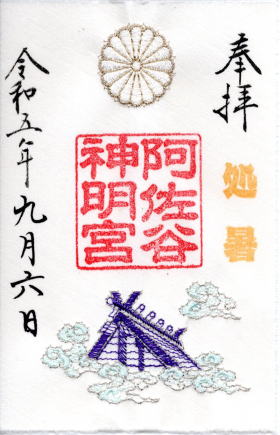 奉拝
処暑
阿佐谷
神明宮
令和五年九月六日